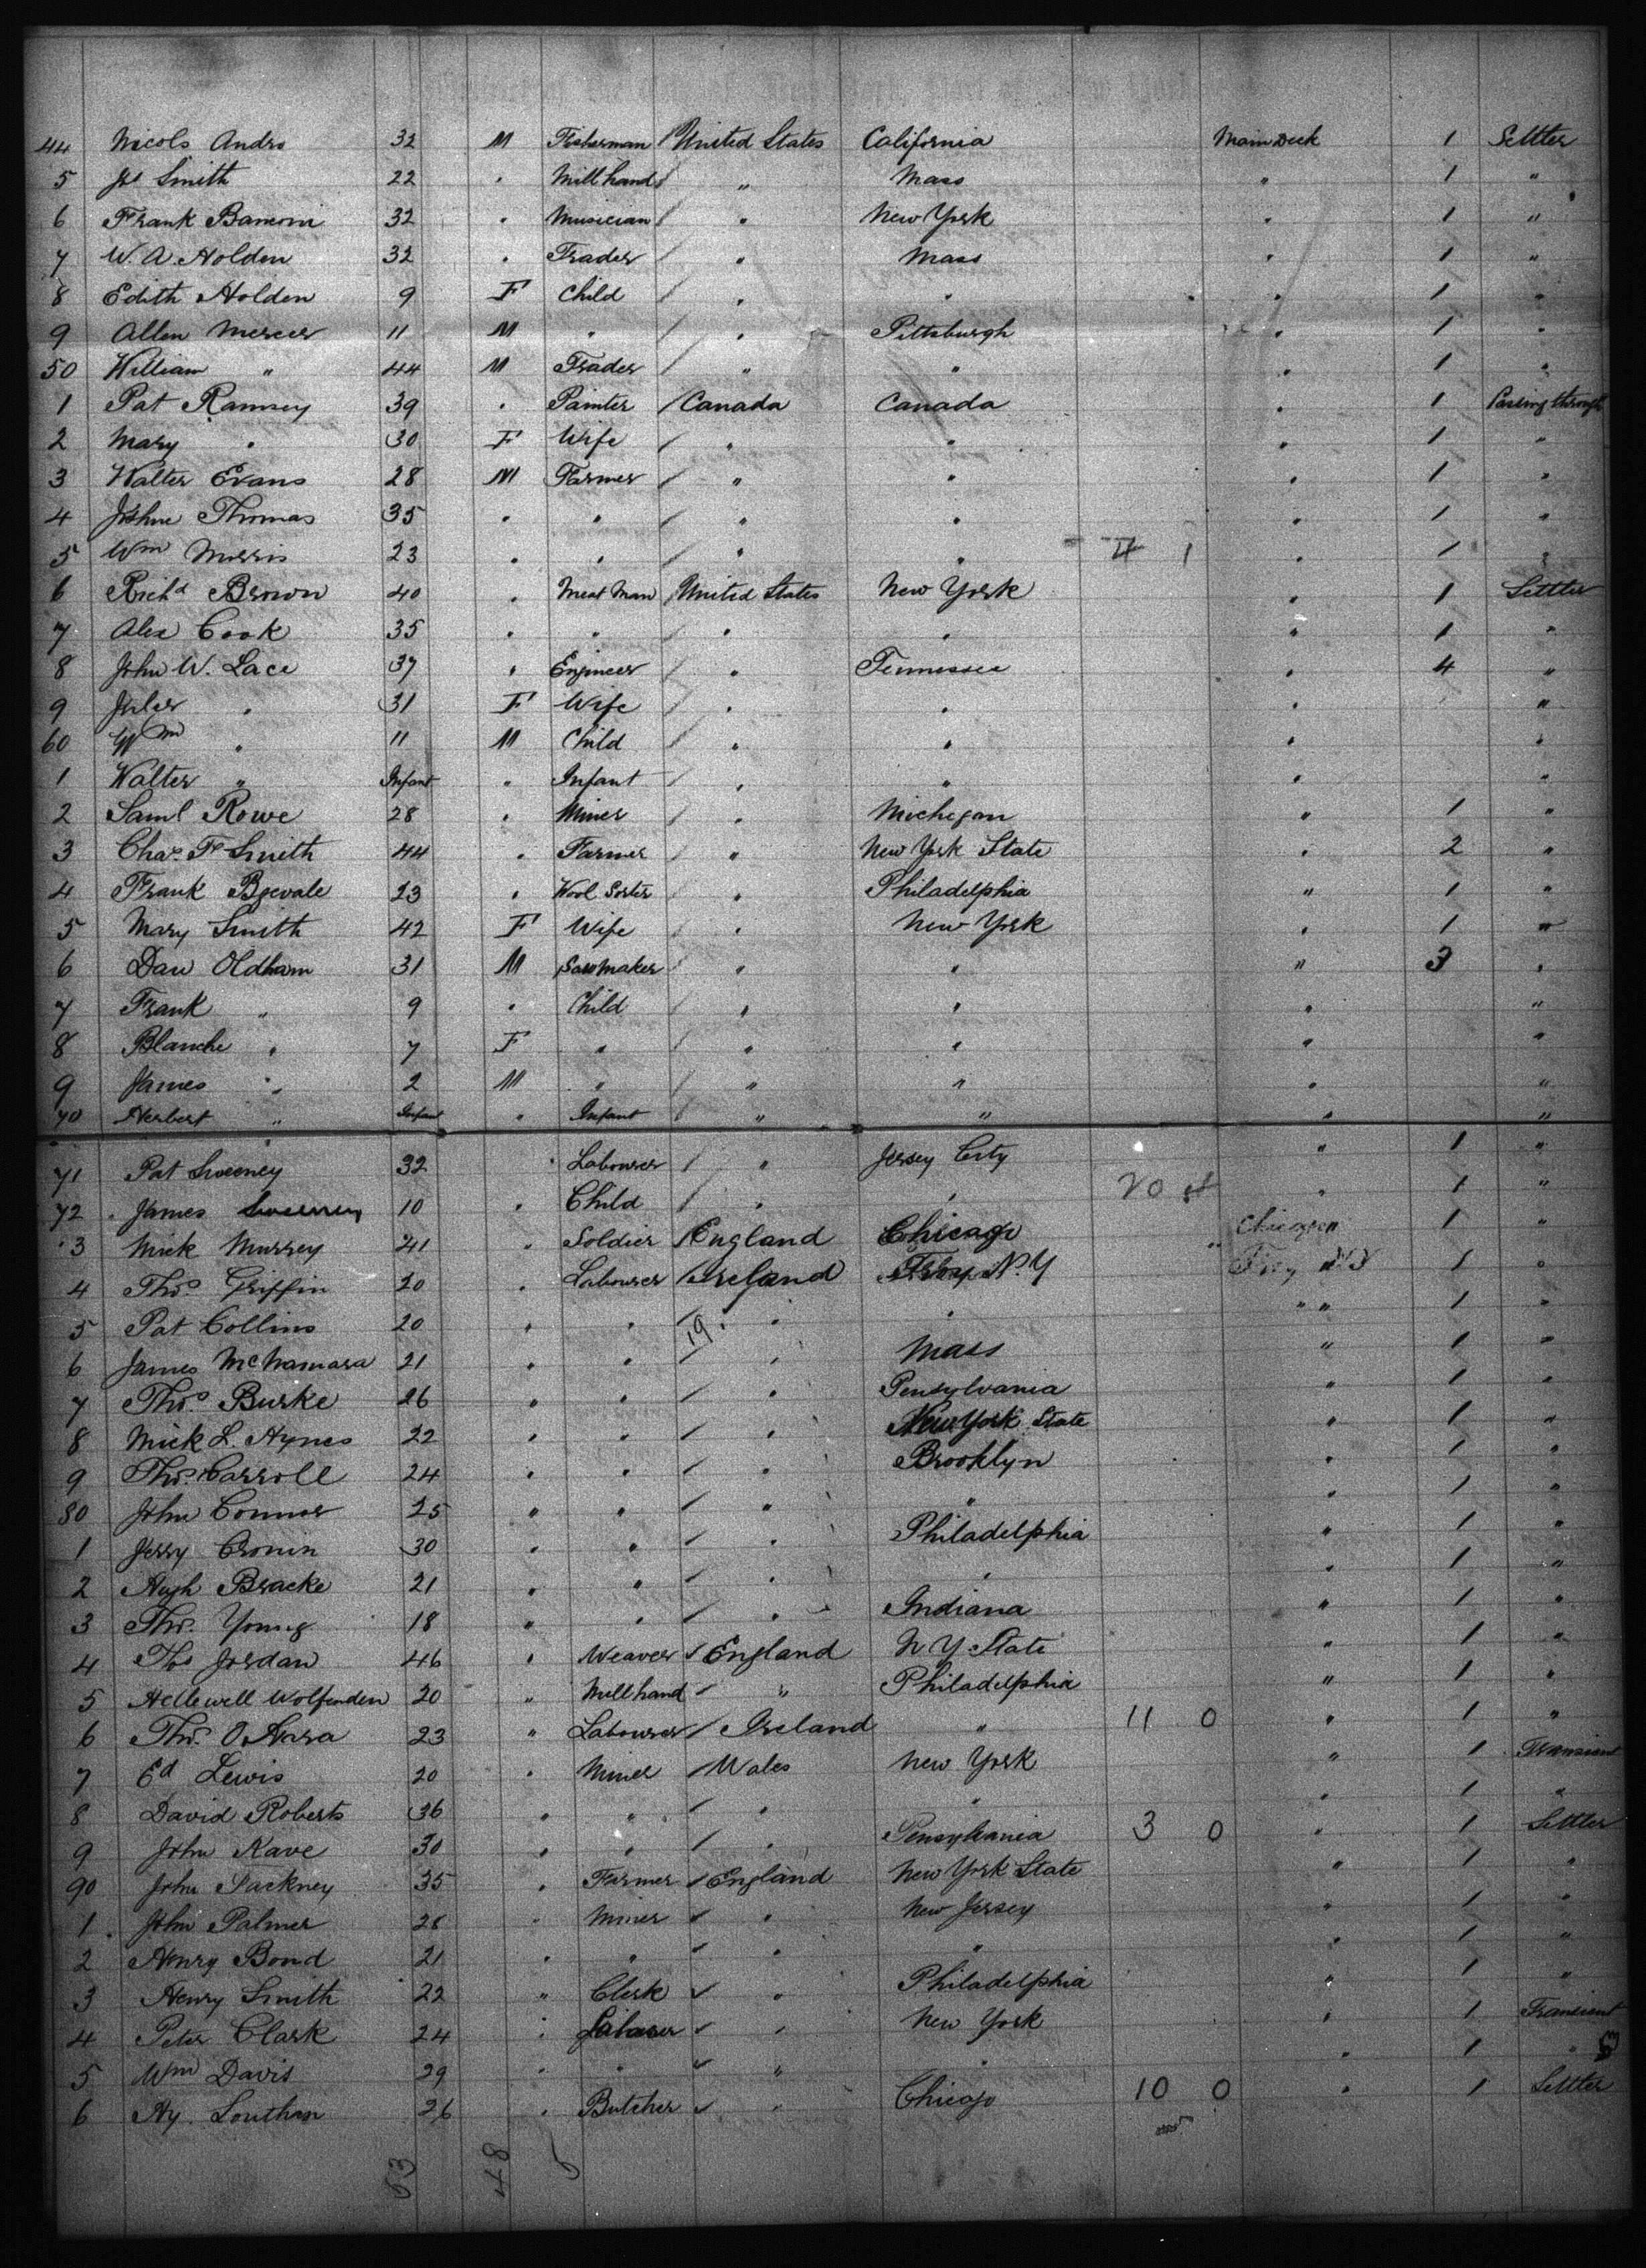 44 Nicols Andro 32 M Fisherman / United States California Main Deck 1 Settler
5 Js Smith 22 " Millhand / " Mass " 1 "
6 Frank 32 " Musician / " New York " 1 "
7 W. A. Holden 32 " Trader " Mass " 1 "
8 Edith Holden 9 F Child / " " " 1 "
9 Allen Mercer 11 M " / " Pittsburgh " 1 "
50 William " 44 M Trader / " " " 1 "
1 Pat Ramsey 39 " Painter / Canada Canada " 1 Passing through
2 Mary " 30 F Wife / " " " 1 "
3 Walter Evans 28 M Farmer / " " " 1 "
4 Johne Thomas 35 " " / " " " 1 "
5 Wm Morris 23 " " / " " 4 1 " 1 "
6 Richd Brown 40 " Meat Man / United States New York " 1 Settler
7 Alex Cook 35 " " " " " 1 "
8 John W. Lace 37 " Engineer / " Tennessee " 4 "
9 " 31 F Wife / " " " "
60 Wm " 11 M Child / " " " "
1 Walter " Infant " Infant / " " " "
2 Saml Rowe 28 " Miner / " Michegan " 1 "
3 Chas. F. Smith 44 " Farmer / " New York State " 2 "
4 Frank 23 " Wool Sorter " Philadelphia " 1 "
5 Mary Smith 42 F Wife / " New York " 1 "
6 Dan Oldham 31 M Sawmaker / " " " 3 "
7 Frank " 9 " Child / " " " "
8 Blanche " 7 F " / " " " "
9 James " 2 M " / " " " "
70 Herbert " Infant " Infant / " " " "
71 Pat Sweeney 32 " Labourer / " Jersey City " 1 "
72 James Sweeney 10 " Child / " " 20 " 1 "
3 Mick Murrey 41 " Soldier / England Chicago " Chicago " 1 "
4 Thos. Griffin 20 " Labourer / Ireland Troy N.Y Troy N.Y 1 "
5 Pat Collins 20 " " / 19 " " " " 1 "
6 James McNamara 21 " " / " Mass " 1 "
7 Thos. Burke 26 " " / " Pensylvania " 1 "
8 Mick L. Hynes 22 " " / " New York State " 1 "
9 Thos. Carroll 24 " " / " Brooklyn " 1 "
80 John Connor 25 " " / " " " 1 "
1 Jerry Cronin 30 " " / " Philadelphia " 1 "
2 Hugh Bracke 21 " " / " " " 1 "
3 Thos. Young 18 " " / " Indiana " 1 "
4 Thos Jordan 46 " Weaver ✓ England N Y State " 1 "
5 Hellewell Wolfenden 20 " Millhand ✓ " Philadelphia " 1 "
6 Thos. O Hara 23 " Labourer / Ireland " 11 0 " 1 "
7 Ed Lewis 20 " Miner / Wales New York " 1 Transient
8 David Roberts 36 " " / " " " 1 "
9 John Kave 30 " " / " Pensylvania 3 0 " 1 Settler
90 John Sackney 35 " Farmer ✓ England New York State " 1 "
1 John Palmer 28 " Miner ✓ " New Jersey " 1 "
2 Henry Bond 21 " " ✓ " " " 1 "
3 Henry Smith 22 " Clerk ✓ " Philadelphia " 1 "
4 Peter Clark 24 " Labourer ✓ " New York " 1 Transient
5 Wm Davis 29 " " ✓ " " " 1 "
6 Hy. Louthan 26 " Butcher ✓ " Chicago 10 0 " 1 Settler
53 48 5